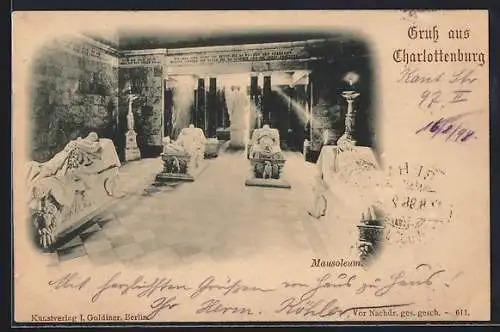 Gruß aus
Charlottenburg
Kant Str
97. II
16/3/98
Mausoleum.
Mit herzlichsten Grüßen von Haus zu Haus!
Ihr Herm. Köhler
Kunstverlag J. Goldiner, Berlin.
Vor Nachdr. ges. gesch. - 611.